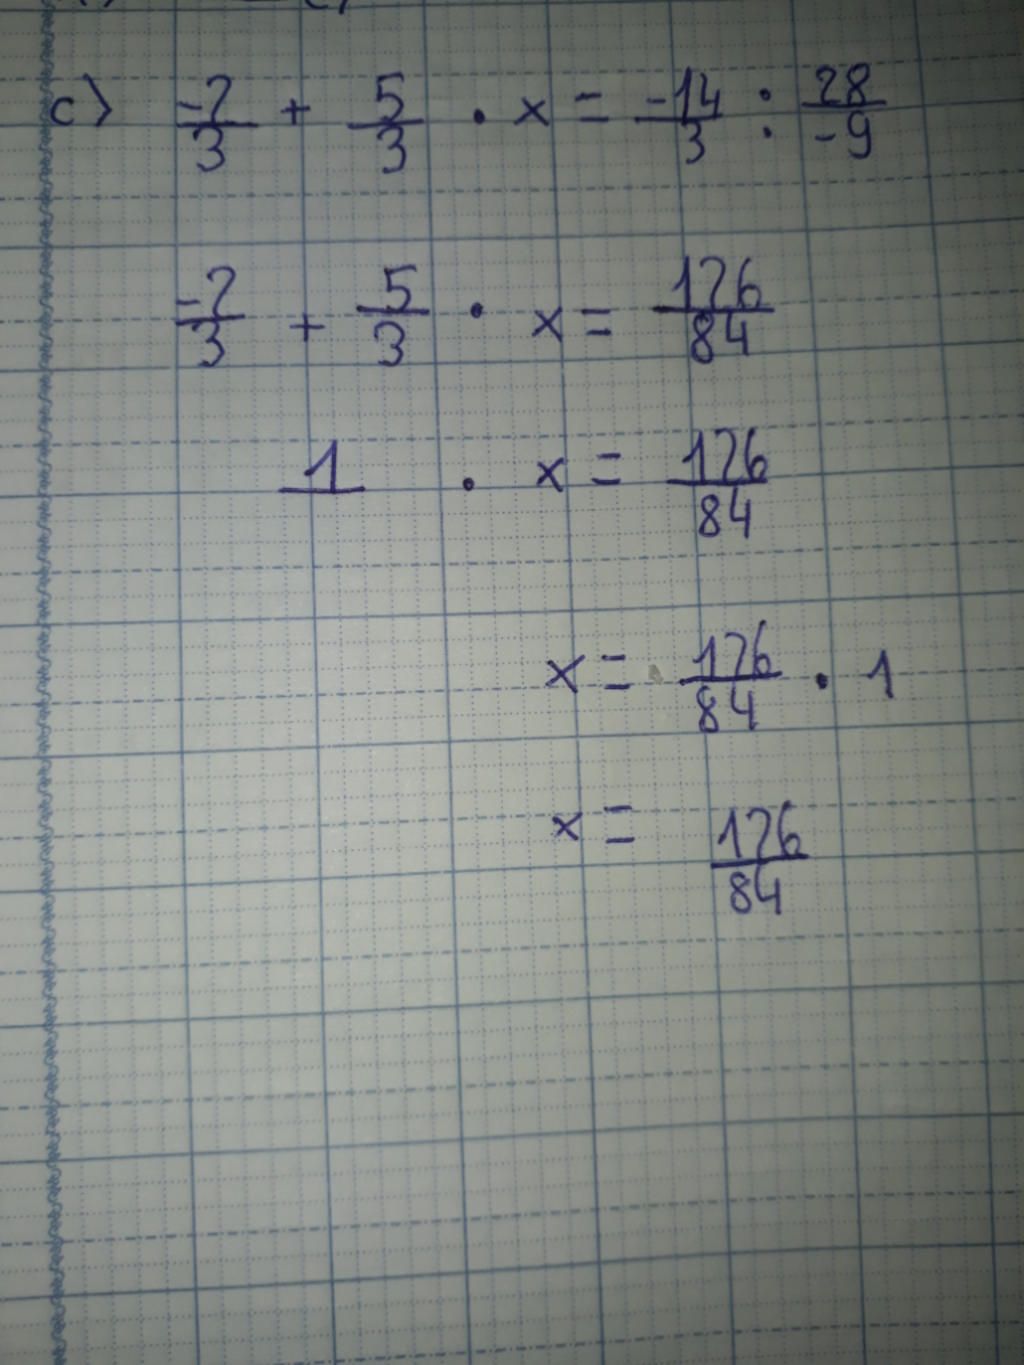 c) -2/3 + 5/3 · x = -14/3 : 28/-9
-2/3 + 5/3 · x = 126/84
1 · x = 126/84
x = 126/84 · 1
x = 126/84